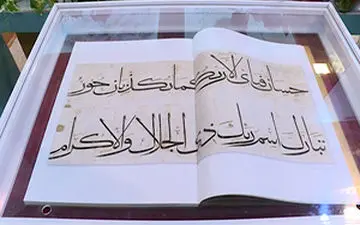 حسان فبای الاء ربكما تكذبان حور
تبارك اسم ربك ذی الجلال والاكرام